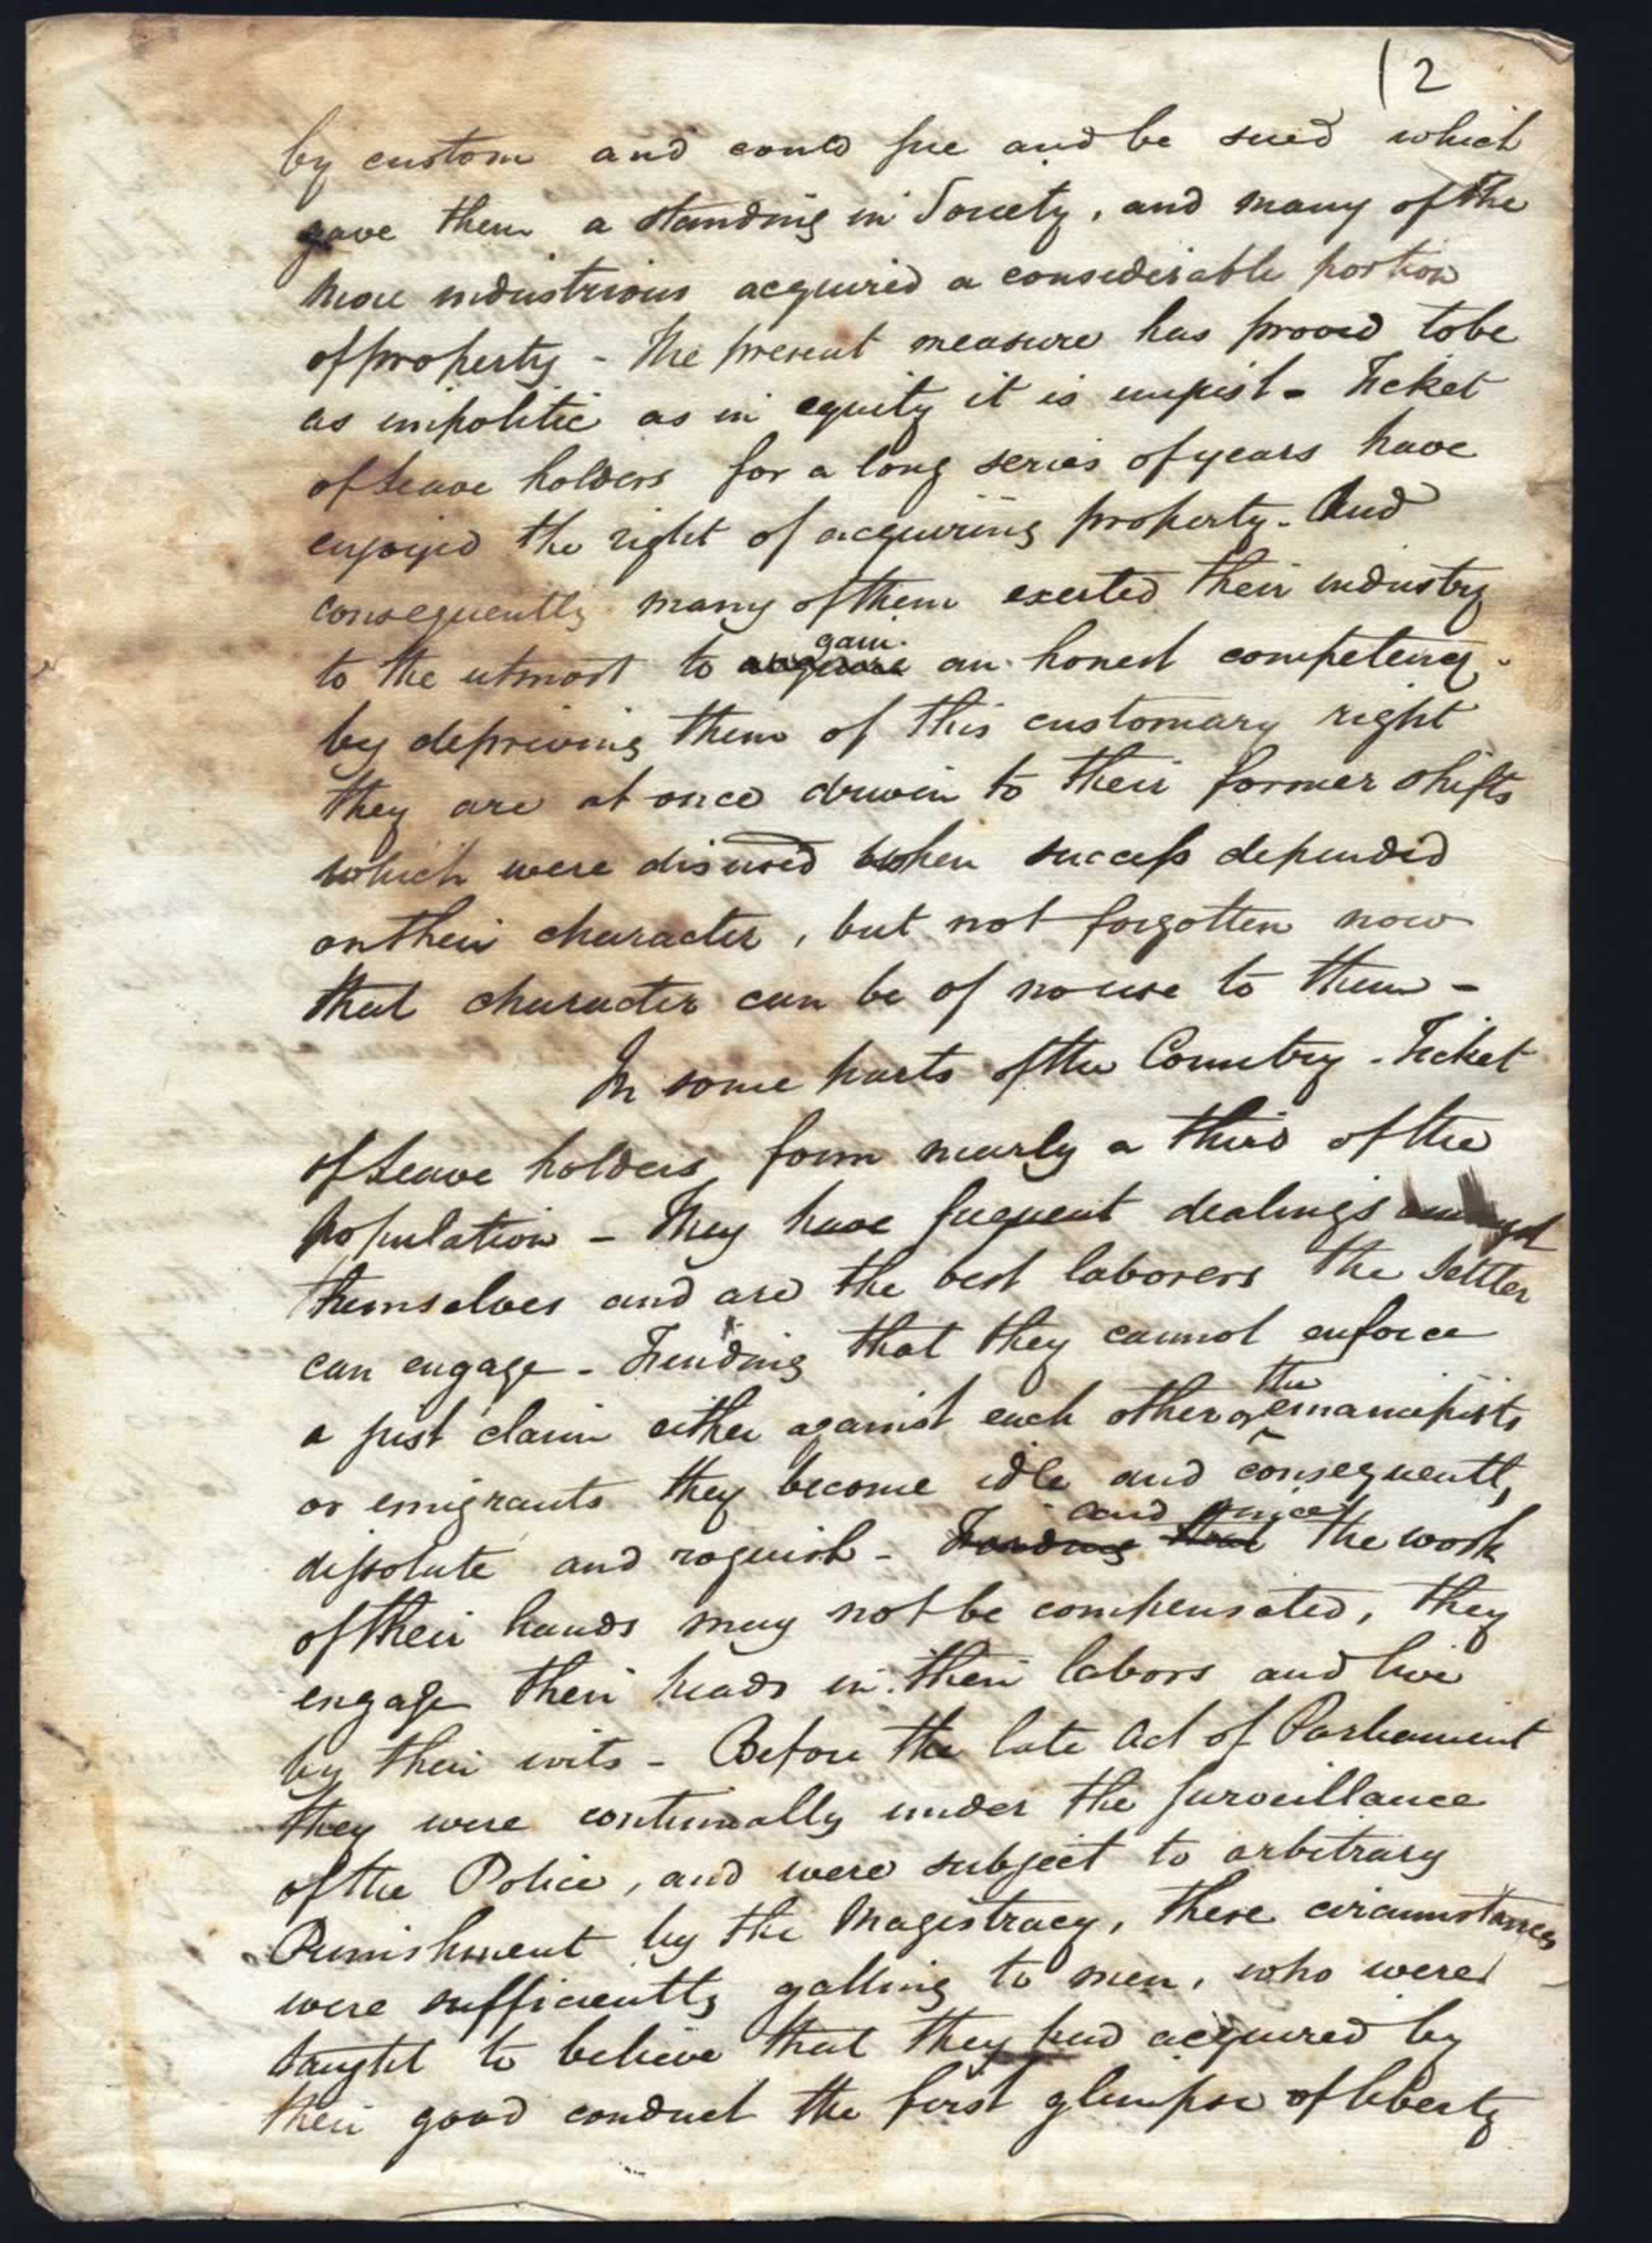 12
by custom and could sue and be sued which
gave them a standing in Society, and many of the
more industrious acquired a considerable portion
of property - The present measure has proved to be
as impolitic as in equity it is unjust - Ticket
of Leave holders for a long series of years have
enjoyed the right of acquiring property - And
consequently many of them exerted their industry
gain
to the utmost to acquire an honest competency.
by depriving them of this customary right
they are at once driven to their former shifts
which were disused when success depended
on their character, but not forgotten now
that character can be of no use to them -
In some parts of the Country - Ticket
of Leave holders form nearly a third of the
population - They have frequent dealings amongst
themselves and are the best laborers the Settler
can engage - Finding that they cannot enforce
the
a just claim either against each other or emancipists
or emigrants they become idle and consequently
and since
dissolute and roguish - Finding that the work
of their hands may not be compensated, they
engage their heads in their labors and live
by their wits - Before the late Act of Parliament
they were continually under the surveillance
of the Police, and were subject to arbitrary
Punishment by the Magistracy, these circumstances
were sufficiently galling to men, who were
taught to believe that they had acquired by
their good conduct the first glimpse of liberty